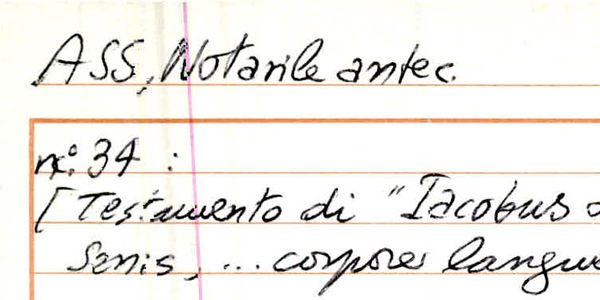 ASS, Notarile antec.
n.° 34 :
[Testamento di "Iacobus
Senis, ... corpore langue